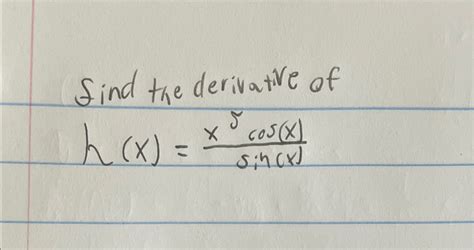 find the derivative of
h(x) = x^5 cos(x) / sin(x)